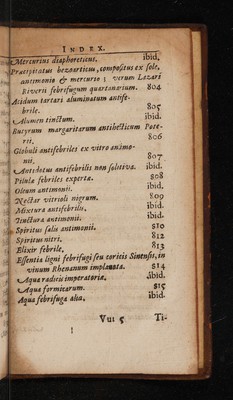 INDEX.
Mercurius diaphoreticus. ibid.
Præcipitatus bezoarticus, compositus ex sole,
antimonio & mercurio; verum Lazari
Riverii febrifugum quartanarium. 804
Acidum tartari aluminatum antife-
brile. 805
Alumen tinctum. ibid.
Butyrum margaritarum antihecticum Pote-
rii. 806
Globuli antifebriles ex vitro antimo-
nii. 807
Antidotus antifebrilis non solutiva. ibid.
Pilulæ febriles expertæ. 808
Oleum antimonii. ibid.
Nectar vitrioli nigrum. 809
Mixtura antifebrilis. ibid.
Tinctura antimonii. ibid.
Spiritus salis antimonii. 810
Spiritus nitri. 812
Elixir febrile. 813
Essentia ligni febrifugi seu corticis Sinensis, in
vinum Rhenanum implantata. 814
Aqua radicis imperatoria. ibid.
Aqua formicarum. 815
Aqua febrifuga alia. ibid.
Vuu 5 Ti-